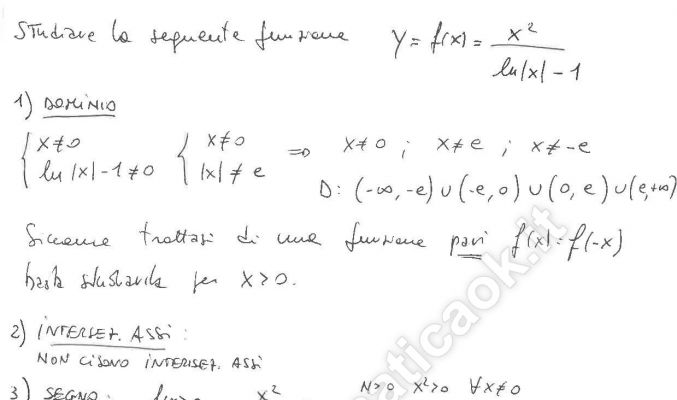 Studiare la seguente funzione y = f(x) = x² / (ln|x| - 1)
1) DOMINIO
{ x≠0 { x≠0 => x≠0 ; x≠e ; x≠-e
{ ln|x|-1≠0 { |x|≠e D: (-∞,-e)∪(-e,0)∪(0,e)∪(e,+∞)
Siccome trattasi di una funzione pari f(x)=f(-x)
basta studiarla per x>0.
2) INTERSEZ. ASSI :
NON CI SONO INTERSEZ. ASSI
3) SEGNO: x² N>0 x²>0 ∀x≠0
aticaok.it